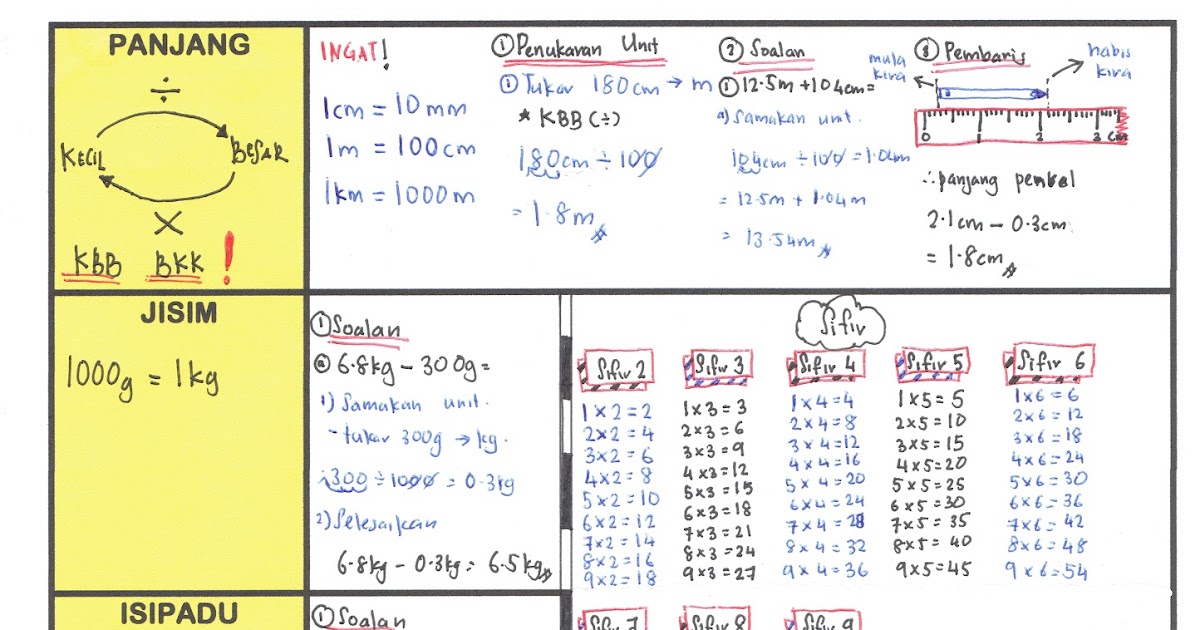 PANJANG
÷
KECIL
BESAR
×
KBB BKK !
INGAT!
1cm = 10 mm
1m = 100cm
1km = 1000 m
① Penukaran Unit
① Tukar 180cm → m
* KBB (÷)
180cm ÷ 100
= 1.8m
② Soalan
① 12.5m + 104cm =
a) Samakan unit.
104cm ÷ 100 = 1.04m
= 12.5m + 1.04m
= 13.54m
③ Pembaris
mula kira
habis kira
0 1 2 3 cm
∴ panjang pensel
2.1cm - 0.3cm
= 1.8cm
JISIM
1000g = 1kg
① Soalan
ⓐ 6.8kg - 300g =
1) Samakan unit.
- tukar 300g → kg.
300 ÷ 1000 = 0.3kg
2) Selesaikan
6.8kg - 0.3kg = 6.5kg
Sifir
Sifir 2
1 × 2 = 2
2 × 2 = 4
3 × 2 = 6
4 × 2 = 8
5 × 2 = 10
6 × 2 = 12
7 × 2 = 14
8 × 2 = 16
9 × 2 = 18
Sifir 3
1 × 3 = 3
2 × 3 = 6
3 × 3 = 9
4 × 3 = 12
5 × 3 = 15
6 × 3 = 18
7 × 3 = 21
8 × 3 = 24
9 × 3 = 27
Sifir 4
1 × 4 = 4
2 × 4 = 8
3 × 4 = 12
4 × 4 = 16
5 × 4 = 20
6 × 4 = 24
7 × 4 = 28
8 × 4 = 32
9 × 4 = 36
Sifir 5
1 × 5 = 5
2 × 5 = 10
3 × 5 = 15
4 × 5 = 20
5 × 5 = 25
6 × 5 = 30
7 × 5 = 35
8 × 5 = 40
9 × 5 = 45
Sifir 6
1 × 6 = 6
2 × 6 = 12
3 × 6 = 18
4 × 6 = 24
5 × 6 = 30
6 × 6 = 36
7 × 6 = 42
8 × 6 = 48
9 × 6 = 54
ISIPADU
① Soalan
Sifir 7
Sifir 8
Sifir 9